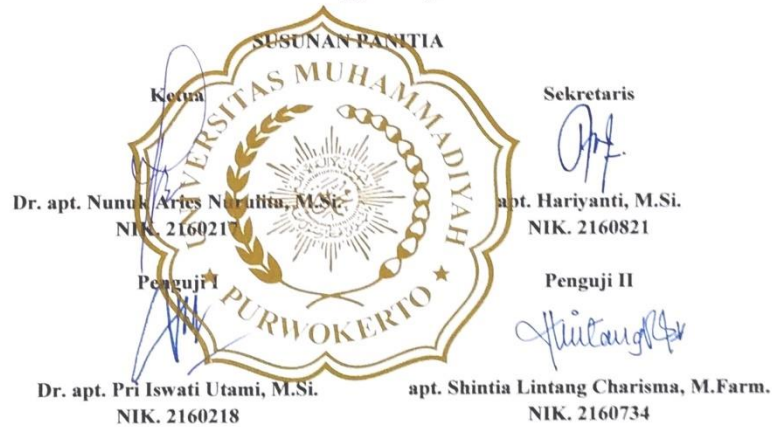 SUSUNAN PANITIA
Ketua
Sekretaris
Dr. apt. Nunuk Aries Nurulita, M.Si.
NIK. 2160217
apt. Hariyanti, M.Si.
NIK. 2160821
Penguji I
Penguji II
Dr. apt. Pri Iswati Utami, M.Si.
NIK. 2160218
apt. Shintia Lintang Charisma, M.Farm.
NIK. 2160734
UNIVERSITAS MUHAMMADIYAH
PURWOKERTO